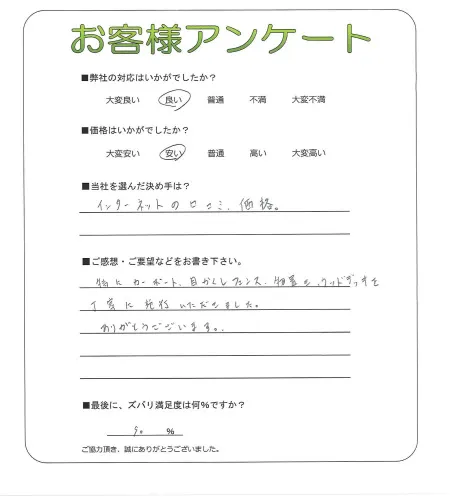 お客様アンケート
■弊社の対応はいかがでしたか？
大変良い 良い 普通 不満 大変不満
■価格はいかがでしたか？
大変安い 安い 普通 高い 大変高い
■当社を選んだ決め手は？
インターネットの口コミ、価格。
■ご感想・ご要望などをお書き下さい。
特にカーポート、目かくしフェンス、物置と、ウッドデッキを
丁寧に施行いただきました。
ありがとうございます。
■最後に、ズバリ満足度は何%ですか？
90 %
ご協力頂き、誠にありがとうございました。